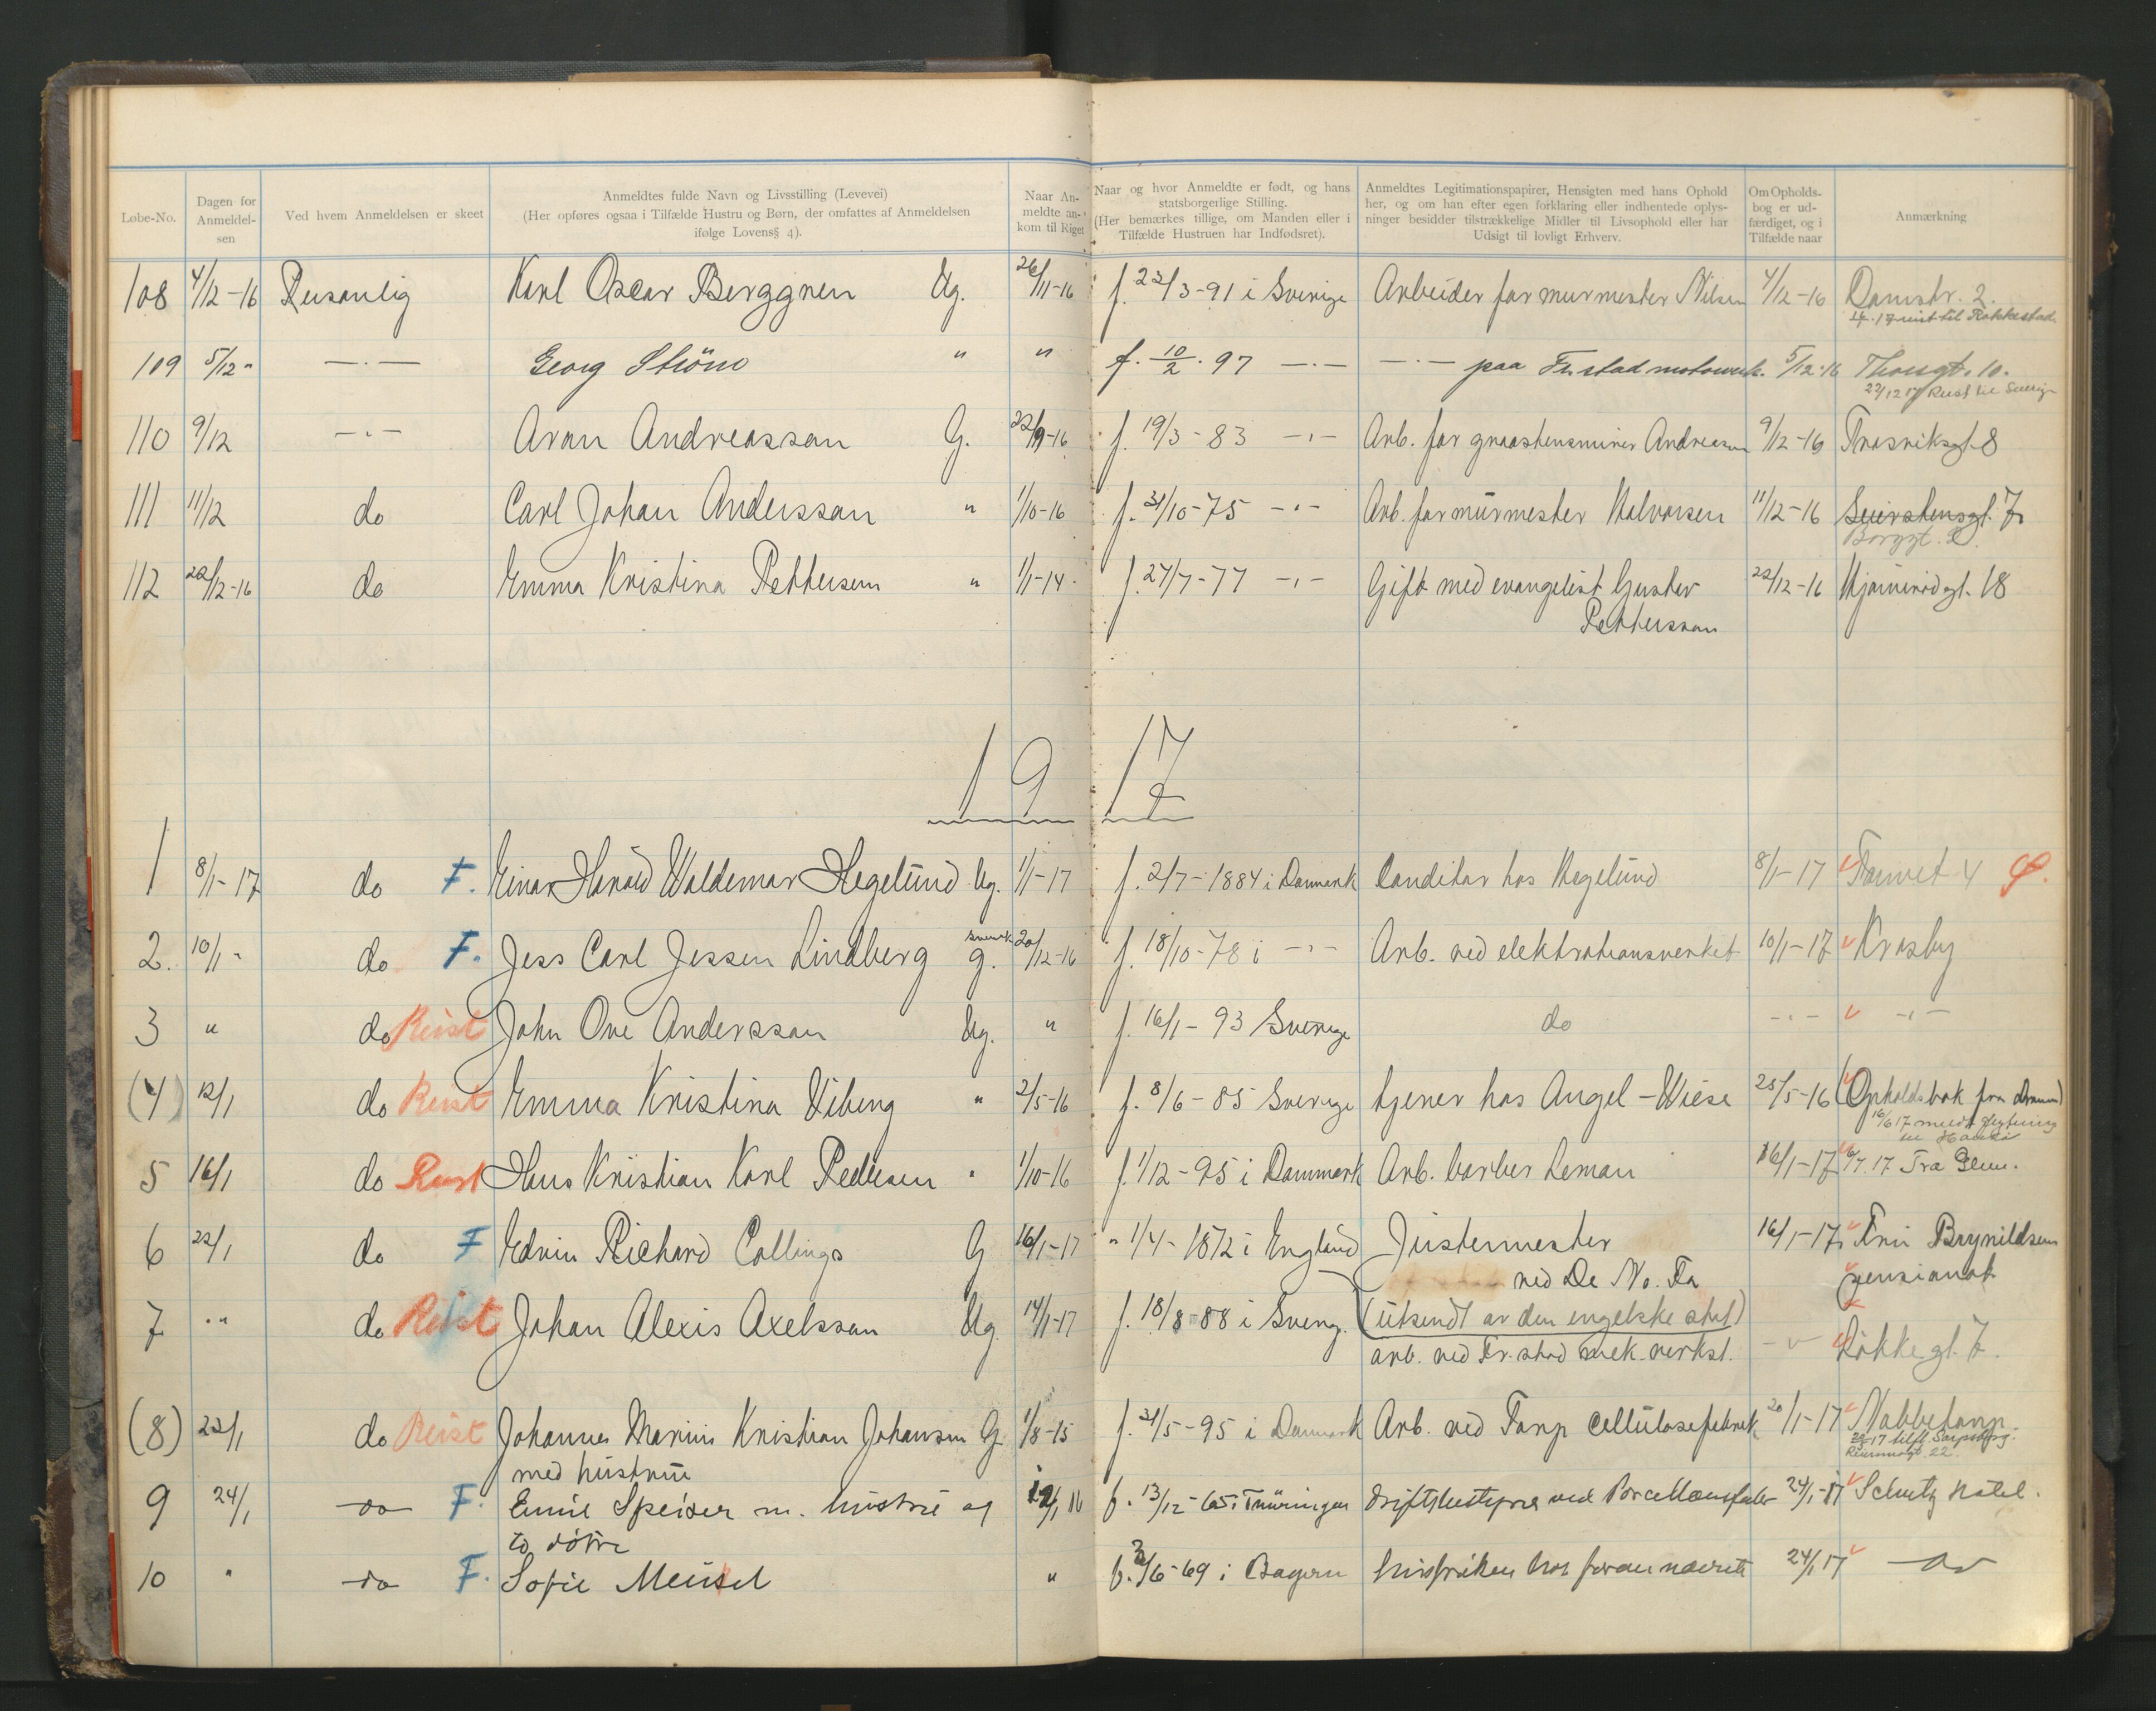 Løbe-No.
Dagen for Anmeldel-sen
Ved hvem Anmeldelsen er skeet
Anmeldtes fulde Navn og Livsstilling (Levevei)
(Her opføres ogsaa i Tilfælde Hustru og Børn, der omfattes af Anmeldelsen
ifølge Lovens§ 4).
Naar An-
meldte an-
kom til Riget
Naar og hvor Anmeldte er født, og hans
statsborgerlige Stilling.
(Her bemærkes tillige, om Manden eller i
Tilfælde Hustruen har Indfødsret).
Anmeldtes Legitimationspapirer, Hensigten med hans Ophold
her, og om han efter egen forklaring eller indhentede oplys-
ninger besidder tilstrækkelige Midler til Livsophold eller har
Udsigt til lovligt Erhverv.
Om Opholds-
bog er ud-
færdiget, og i
Tilfælde naar
Anmærkning
108 4/12-16 Personlig Karl Oscar Berggren Ug. 26/11-16 f. 22/3-91 i Sverige Arbeider for murmester Nilsen 4/12-16 Damstr. 2.
reist til Rakkestad
109 5/12 " —·— Georg Ström " " f. 10/2. 97 —·— —·— paa 5/12-16 10.
22/12 17 Reist til Sverige
110 9/12 —·— Aron Andreasson G. f. 19/3-83 —·— Arb. for graastensmurer Andreasen 9/12-16 8
111 11/12 do Carl Johan Andersson " 1/10-16 f. 31/10-75 —·— Arb. for murmester Halvorsen 11/12-16 Seierstensgt. 7
Borggt.
112 22/12-16 do Emma Kristina Pettersen " 1/1-14 f. 27/7-77 —·— Gift med evangelist Gustav 22/12-16 18
Pettersson
1917
1 8/1-17 do F. Einar Harald Waldemar Hegelund Ug. 1/1-17 f. 2/7-1884 i Danmark Conditor hos Hegelund 8/1-17 Torvet 4
2. 10/1 " do F. Jess Carl Jessen Lindberg svensk g. 20/12-16 f. 18/10-78 i —·— Arb. ved 10/1-17 Kraaby
3 " do Reist John Ove Andersson Ug. " f. 16/1-93 Sverige do —·— —·—
(4) 12/1 do Reist Emma Kristina Viberg " 2/5-16 f. 8/6-85 Sverige tjener hos Angel-Wiese 25/5-16 (Opholdsbok fra Dramm)
16/6 17
til Hankø
5 16/1 do Reist Hans Kristian Karl Pedersen " 1/10-16 f. 1/12-95 i Danmark Arb. barber Leman 16/1-17 17 Fra
6 22/1 do F Edvin Richard Collings G 16/1-17 " 1/4-1872 i England Justermester 16/1-17 Fru Brynildsens
ved De No. Fa pensionat
7 " " do Reist Johan Alexis Axelsson Ug 14/1-17 f. 18/8-88 i Sverig. (utsendt av den engelske stat)
arb. ved Fr.stad mek. verkst. Løkkegt. 7.
(8) 22/1 do Reist Johannes Marius Kristian Johansen G. 1/8-15 f. 31/5-95 i Danmark Arb. ved Torp cellulosefabrik 20/1-17 Nabbetorp
med hustru 17 tilfl. Sarpsborg.
22.
9 24/1 do F. Emil Speiser m. hustru og f. 13/12-65 i Thüringen driftsbestyrer ved Porcellænsfabr 24/1-17 Schutz Hotel.
to døtre
10 " do F. Sofie Meusel " f. 3/6-69 i Bayern hos forannævnte 24/1 17 do